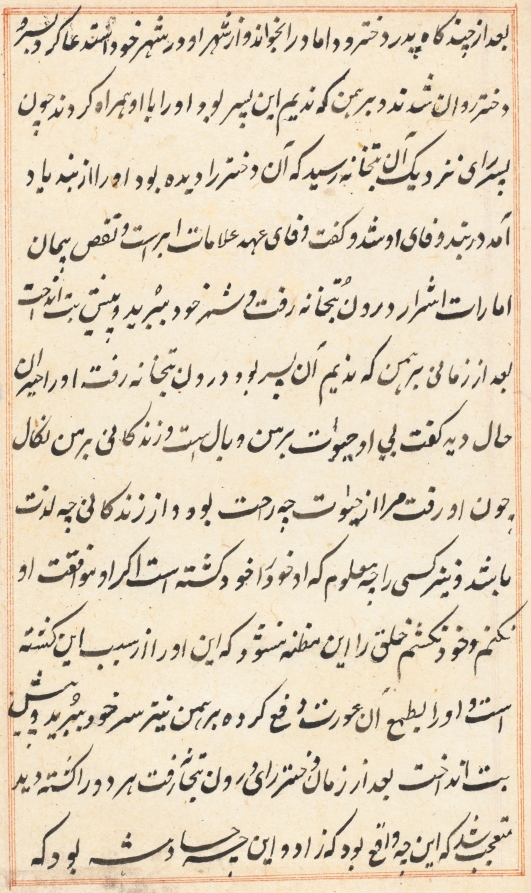 بعد از چندگاه پدر دختر و داماد را بخواند و از شهر او در شهر خود استدعا کرد پسر و
دختر روان شدند و برهمن که ندیم این پسر بود او را با او همراه کردند چون
پسر رای نزدیک آن بتخانه رسید که آن دختر را دیده بود او را از بند یاد
آمد در بند وفای او شد و گفت وفای عهد علامات ابرار است و نقص پیمان
امارات اشرار درون بتخانه رفت و سر خود ببرید و پیش بت انداخت
بعد از زمانی برهمن که ندیم آن پسر بود درون بتخانه رفت او را حیران
حال دید گفت بی او حیوت بر من وبال است و زندگانی بر من نکال
چون او رفت مرا از حیوت چه راحت بود و از زندگانی چه لذت
باشد و نیز کسی را چه معلوم که او خود را خود کشته است اگر او موافقت او
نکنم و خود نکشم خلق را این مظنه شود که این او را از سبب این کشته
است و او را بطمع آن عورت دفع کرده برهمن نیز سر خود ببرید و پیش
بت انداخت بعد از زمان دختر رای درون بتخانه رفت هر دو را کشته دید
متعجب شد که این چه واقع بود که زاد و این چه حادثه بود که